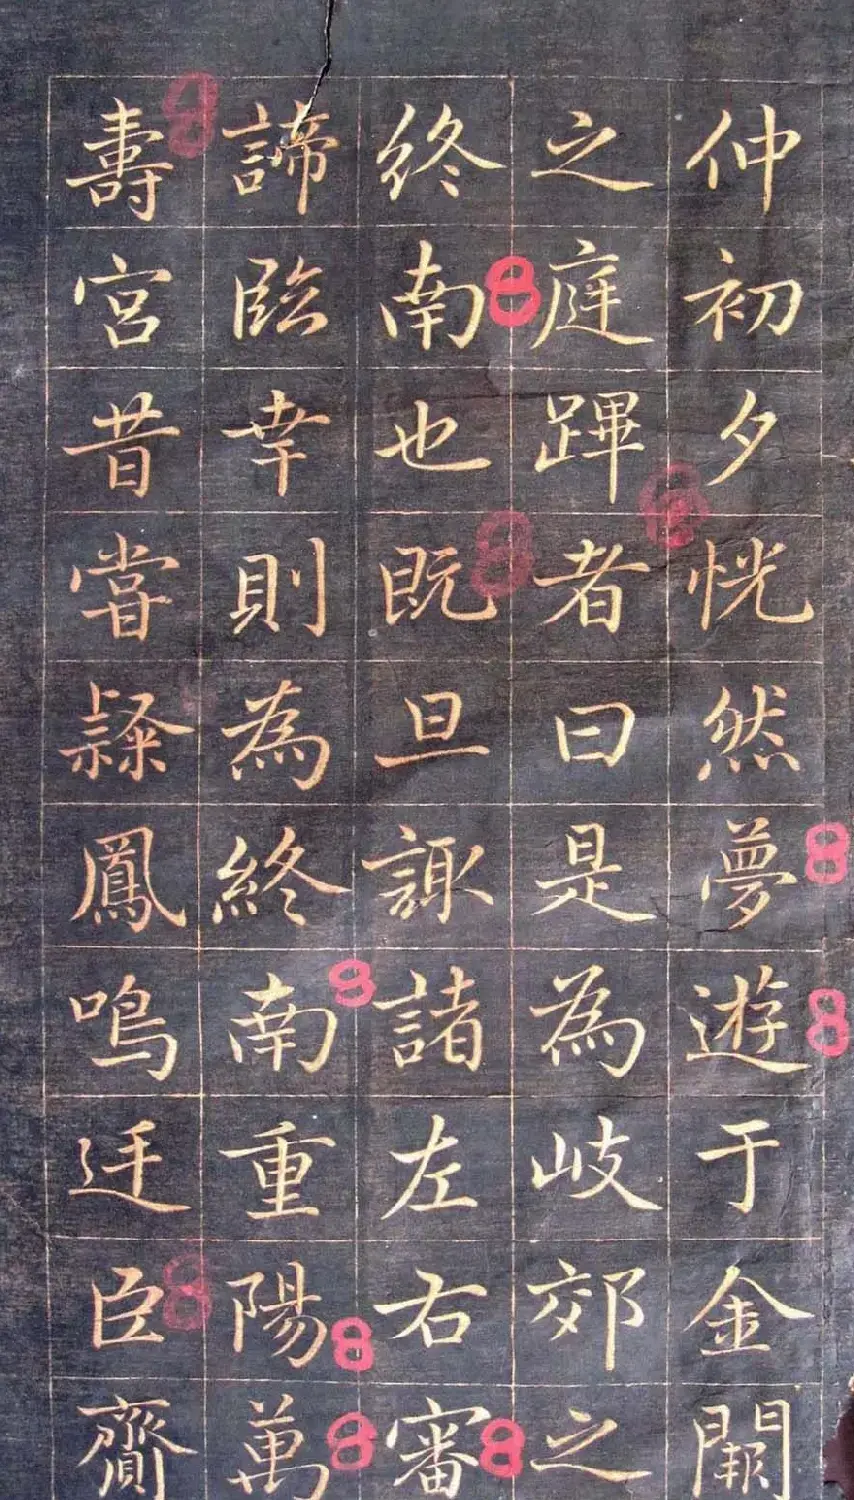 仲初夕恍然夢遊于金闕
之庭蹕者曰是為岐郊之
終南也既旦諏諸左右審
諦臨幸則為終南重陽萬
壽宮昔嘗禒鳳鳴迋臣齎